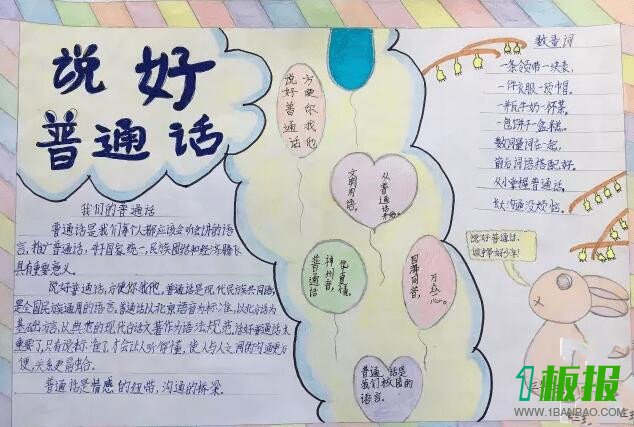 说好
普通话
我们的普通话
普通话是我们每个人都应该会听会讲的语
言,推广普通话,对国家统一,民族团结和经济腾飞
具有重要意义。
说好普通话,方便你我他,普通话是现代民族共同语,
是全国民族通用的语言。普通话以北京语音为标准,以北方话为
基础方言,以典范的现代白话文著作为语法规范
重要了,只有说标准了,才会让人听得懂,使人与人之间的沟通更方
便,关系更融洽。
普通话是情感的纽带,沟通的桥梁。
说好普通话
方便你我他
文明用语,
从普通话
普通话
神州音,
华夏情。
万众一心。
普通话是
我们校园的
语言。
数量词
一条领带一块表,
一件衣服一顶帽。
一瓶牛奶一杯茶。
一包饼干一盒糕。
数词量词在一起,
前后词语搭配好。
从小掌握普通话,
长大沟通没烦恼。
说好普通话,
做中华好少年!
1板报
WWW.1BANBAO.COM